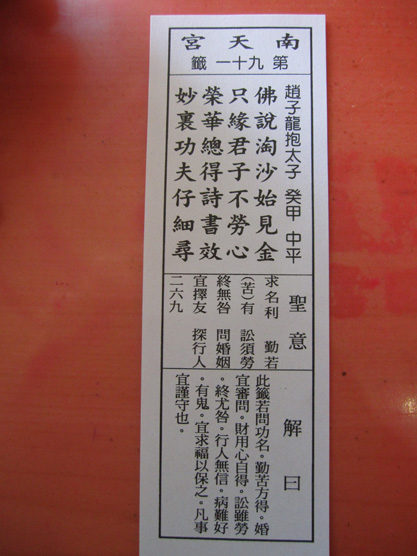 南天宮
第九十一籤
趙子龍抱太子 癸甲 中平
佛說淘沙始見金
只緣君子不勞心
榮華總得詩書效
妙裏功夫仔細尋
聖意
求名利 勤若
(苦)有 訟須勞
終無咎 問婚姻
宜擇友 探行人
二六九
解曰
此籤若問功名。勤苦方得。婚
宜審問。財用心自得。訟雖勞
。終尤咎。行人無信。病難好
。有鬼。宜求福以保之。凡事
宜謹守也。